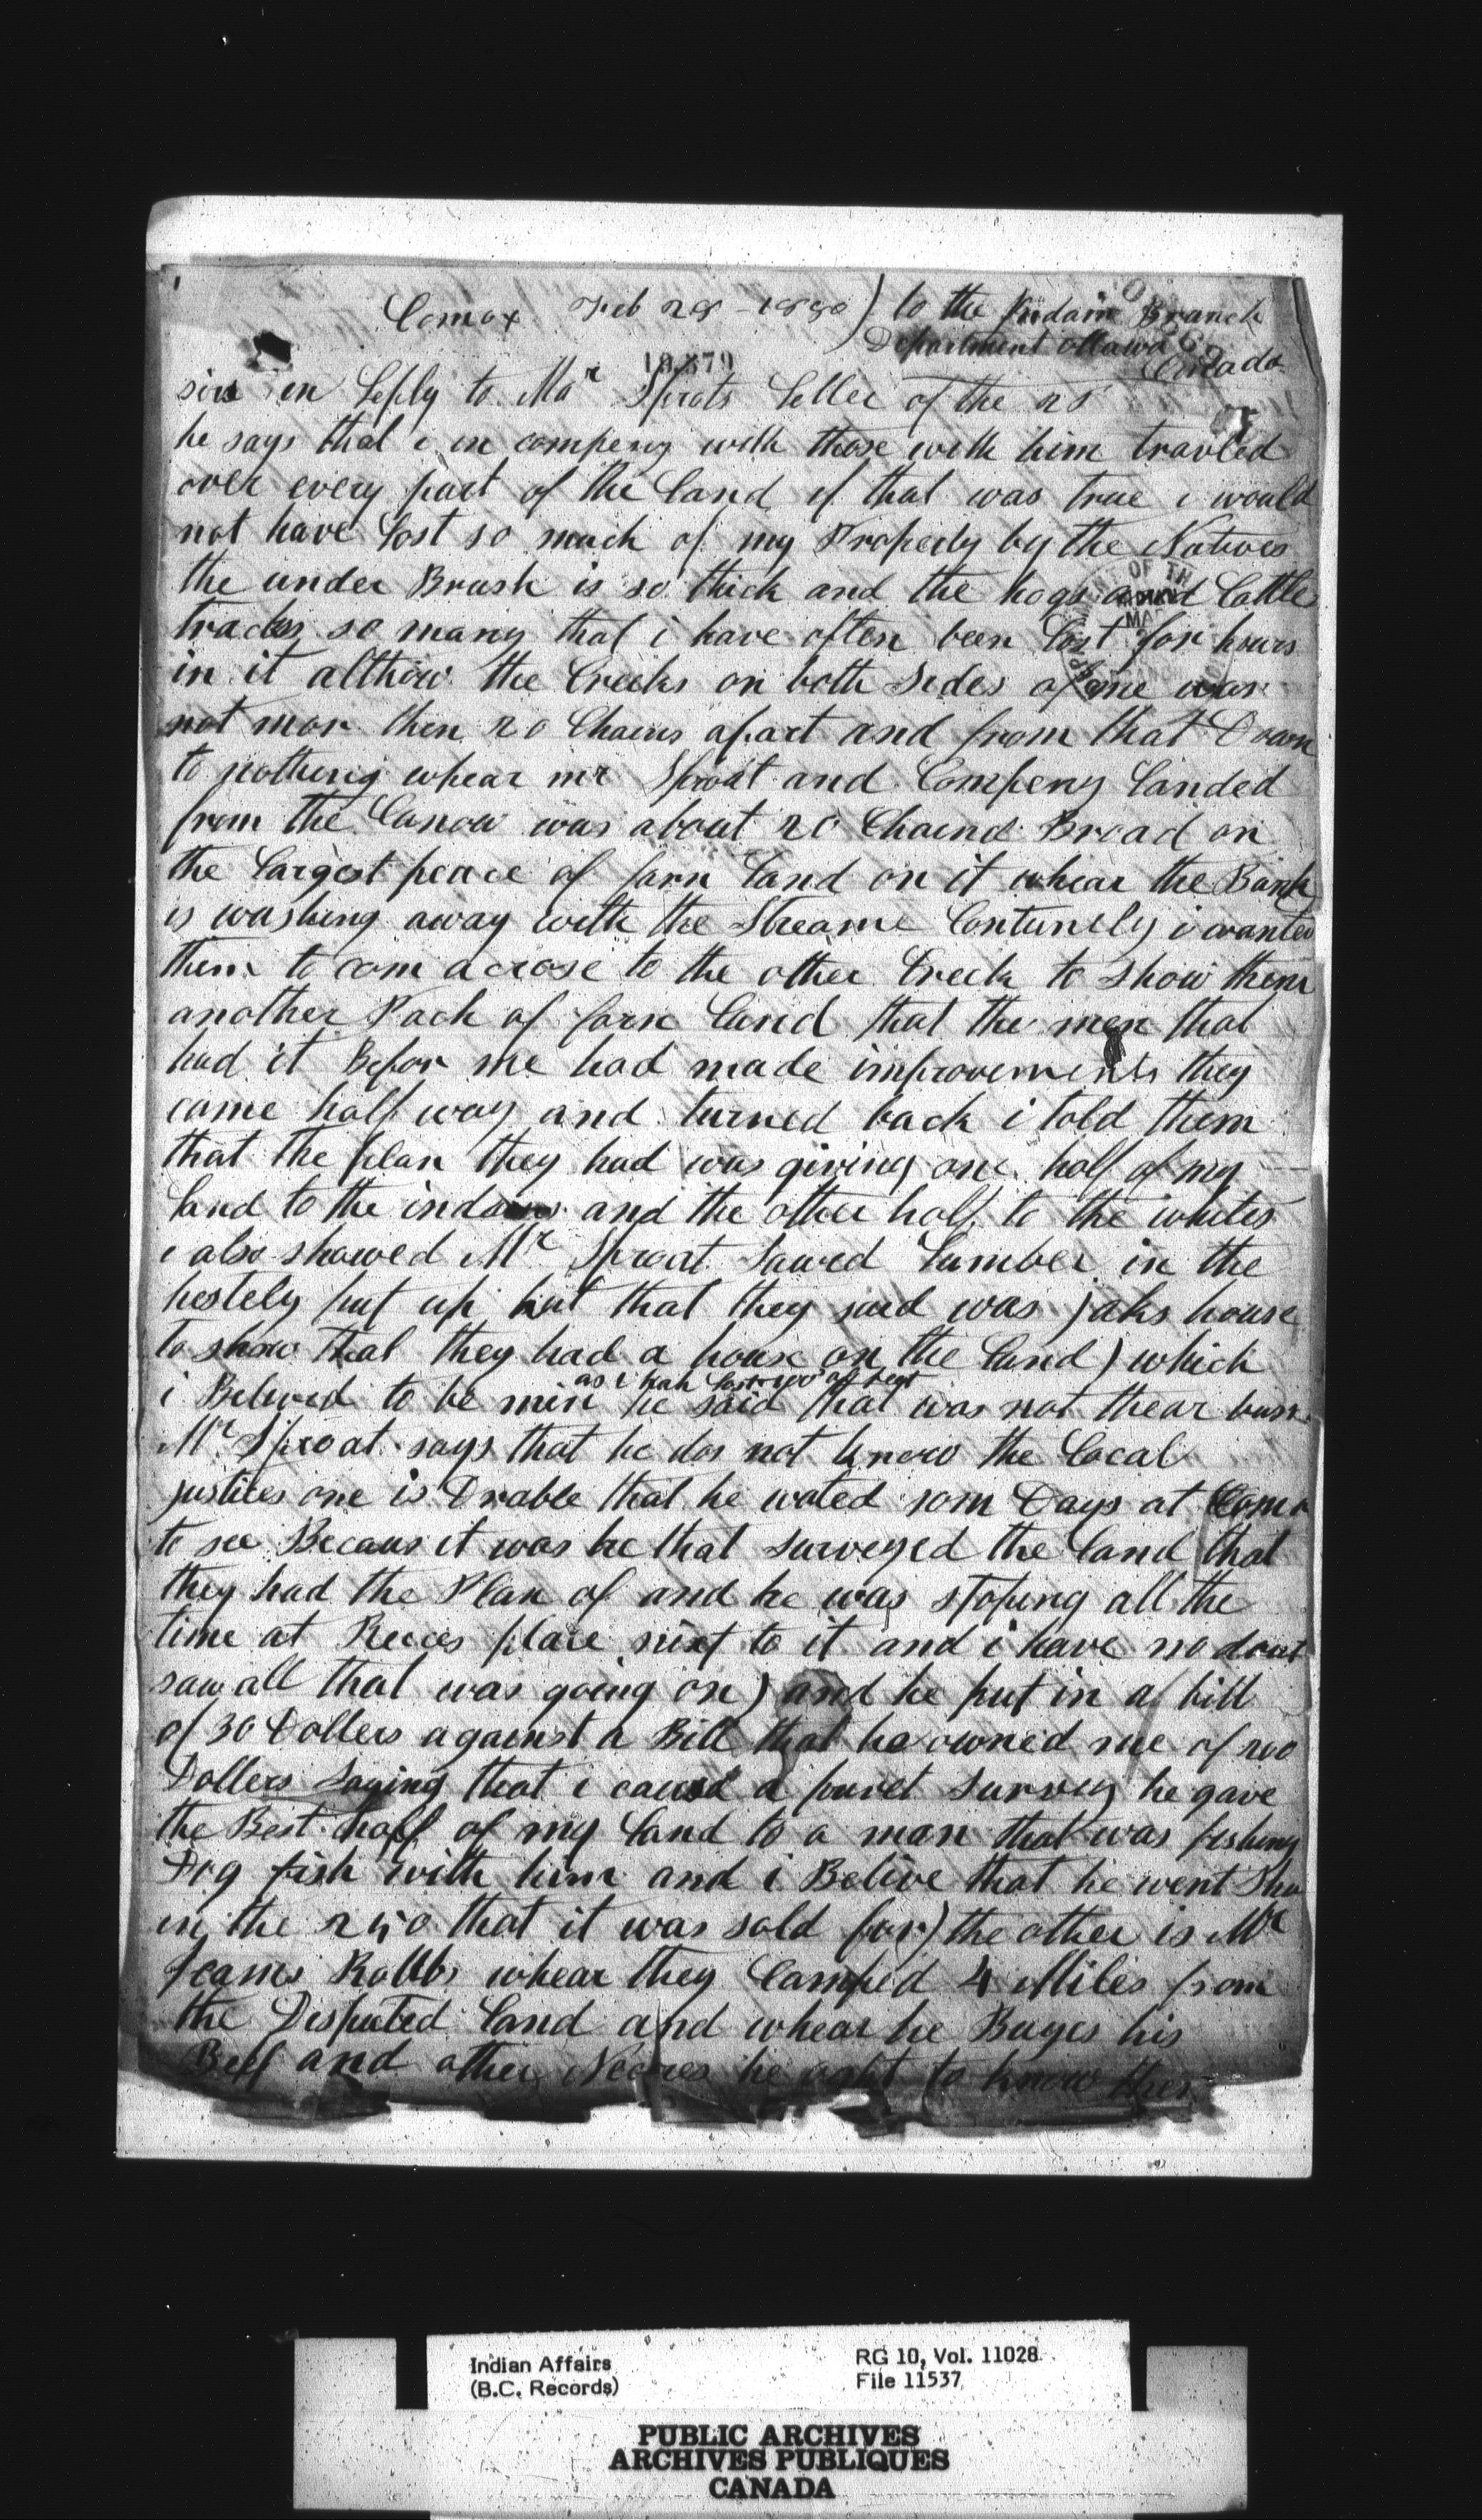 Comox Feb 28 - 1880) to the Indain Branch
Department ottawa
Canada
18879
sirs in Reply to Mr Sprots Letter of the 28
he says that i in compeny with those with him travled
over every part of the Land if that was true i would
not have Lost so much of my Property by the Natives
the under Brush is so thick and the hogs and Cattle
tracks so many that i have often been Lost for hours
in it althow the Creeks on both sides of me was
not mor then 20 Chains apart and from that Down
to nothing whear mr Sproat and Compeny Landed
from the Canow was about 20 Chaind Broad on
the Largest peace of farn Land on it whear the Bank
is washing away with the Streame Contunely i wanted
them to com acrose to the other Creek to show them
another Pach of farn Land that the men that
had it Befor me had made improvements they
came half way and turned back i told them
that the plan they had was giving one half of my
Land to the indains and the other half to the whites
i also showed Mr Sproat sawed Lumber in the
hestely put up hut that they said was jaks house
to show that they had a house on the Land) which
as i had Lost
i Belived to be min he said that was not thear busn
Mr Sproat says that he dos not know the Local
justices one is Drable that he wated som Days at Como
to see Becaus it was he that surveyed the Land that
they had the Plan of and he was stoping all the
time at Reeces place nixt to it and i have no dout
saw all that was going on) and he put in a bill
of 30 Dollers against a Bill that he owned me of 200
Dollers saying that i caused a survey he gave
the Best half of my Land to a man that was fishing
Dog fish with him and i Belive that he went
in the 250 that it was sold for) the other is Mr
Jeams Robb whear they Camped 4 Miles from
the Disputed Land and whear he Buyes his
Beff and other he ought to know them
DEPARTMENT OF TH
MA
Indian Affairs
(B.C. Records)
RG 10, Vol. 11028
File 11537
PUBLIC ARCHIVES
ARCHIVES PUBLIQUES
CANADA